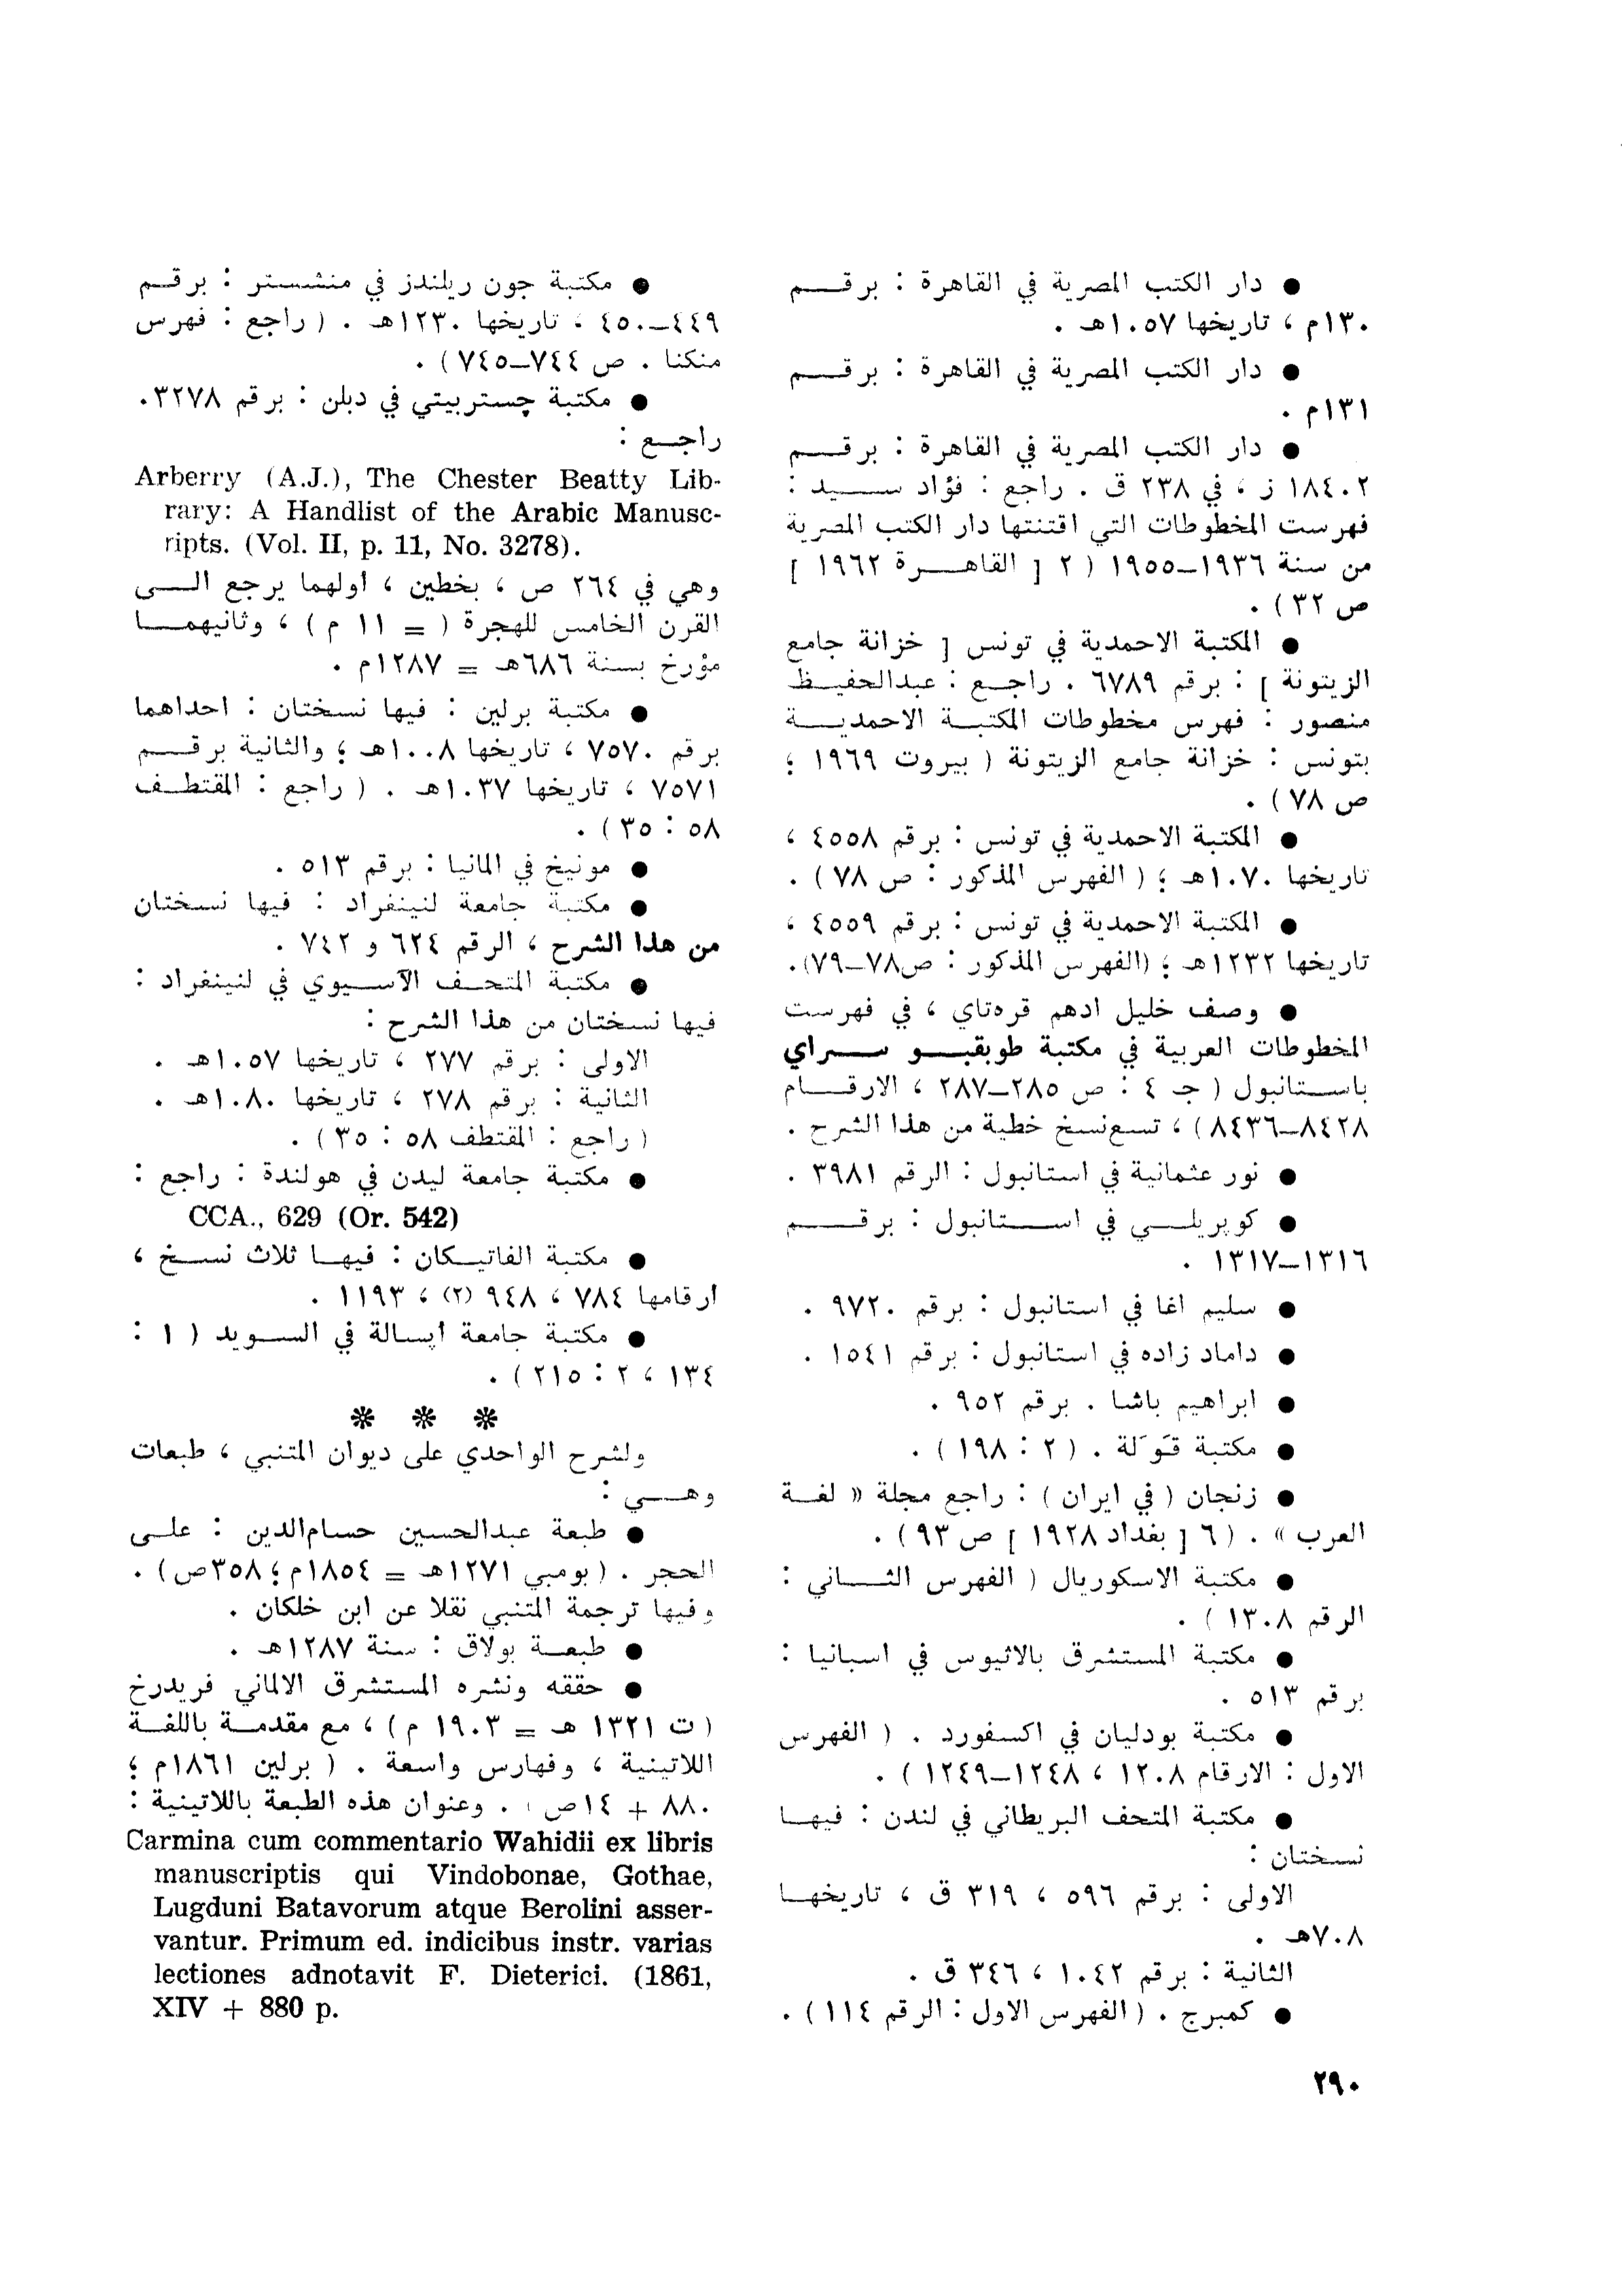 ● دار الكتب المصرية في القاهرة : برقم
١٣٠م ، تاريخها ١٠٥٧هـ .
● دار الكتب المصرية في القاهرة : برقم
١٣١م .
● دار الكتب المصرية في القاهرة : برقم
١٨٤٠٢ ز ، في ٢٣٨ ق . راجع : فؤاد سيد :
فهرست المخطوطات التي اقتنتها دار الكتب المصرية
من سنة ١٩٣٦–١٩٥٥ ( ٢ [ القاهرة ١٩٦٢ ]
ص ٣٢ ) .
● المكتبة الاحمدية في تونس [ خزانة جامع
الزيتونة ] : برقم ٦٧٨٩ . راجع : عبدالحفيظ
منصور : فهرس مخطوطات المكتبة الاحمدية
بتونس : خزانة جامع الزيتونة ( بيروت ١٩٦٩ ؛
ص ٧٨ ) .
● المكتبة الاحمدية في تونس : برقم ٤٥٥٨ ،
تاريخها ١٠٧٠هـ ؛ ( الفهرس المذكور : ص ٧٨ ) .
● المكتبة الاحمدية في تونس : برقم ٤٥٥٩ ،
تاريخها ١٢٣٢هـ ؛ (الفهرس المذكور : ص٧٨–٧٩).
● وصف خليل ادهم قره‌تاي ، في فهرست
المخطوطات العربية في مكتبة طوبقبو سراي
باستانبول ( جـ ٤ : ص ٢٨٥–٢٨٧ ، الارقام
٨٤٢٨–٨٤٣٦ ) ، تسع‌نسخ خطية من هذا الشرح .
● نور عثمانية في استانبول : الرقم ٣٩٨١ .
● كوپريلي في استانبول : برقم
١٣١٦–١٣١٧ .
● سليم اغا في استانبول : برقم ٩٧٢٠ .
● داماد زاده في استانبول : برقم ١٥٤١ .
● ابراهيم باشا . برقم ٩٥٢ .
● مكتبة قَوَلة . ( ٢ : ١٩٨ ) .
● زنجان ( في ايران ) : راجع مجلة « لغة
العرب » . ( ٦ [ بغداد ١٩٢٨ ] ص ٩٣ ) .
● مكتبة الاسكوريال ( الفهرس الثاني :
الرقم ١٣٠٨ ) .
● مكتبة المستشرق بالاثيوس في اسبانيا :
برقم ٥١٣ .
● مكتبة بودليان في اكسفورد . ( الفهرس
الاول : الارقام ١٢٠٨ ، ١٢٤٨–١٢٤٩ ) .
● مكتبة المتحف البريطاني في لندن : فيها
نسختان :
الاولى : برقم ٥٩٦ ، ٣١٩ ق ، تاريخها
٧٠٨هـ .
الثانية : برقم ١٠٤٢ ، ٣٤٦ ق .
● كمبرج . ( الفهرس الاول : الرقم ١١٤ ) .
● مكتبة جون ريلندز في منشستر : برقم
٤٤٩–٤٥٠ ، تاريخها ١٢٣٠هـ . ( راجع : فهرس
منكنا . ص ٧٤٤–٧٤٥ ) .
● مكتبة چستربيتي في دبلن : برقم ٣٢٧٨.
راجع :
Arberry (A.J.), The Chester Beatty Lib-
rary: A Handlist of the Arabic Manusc-
ripts. (Vol. II, p. 11, No. 3278).
وهي في ٢٦٤ ص ، بخطين ، أولهما يرجع الى
القرن الخامس للهجرة ( = ١١ م ) ، وثانيهما
مؤرخ بسنة ٦٨٦هـ = ١٢٨٧م .
● مكتبة برلين : فيها نسختان : احداهما
برقم ٧٥٧٠ ، تاريخها ١٠٠٨هـ ؛ والثانية برقم
٧٥٧١ ، تاريخها ١٠٣٧هـ . ( راجع : المقتطف
٥٨ : ٣٥ ) .
● مونيخ في المانيا : برقم ٥١٣ .
● مكتبة جامعة لنينغراد : فيها نسختان
من هذا الشرح ، الرقم ٦٢٤ و ٧٤٢ .
● مكتبة المتحف الآسيوي في لنينغراد :
فيها نسختان من هذا الشرح :
الاولى : برقم ٢٧٧ ، تاريخها ١٠٥٧هـ .
الثانية : برقم ٢٧٨ ، تاريخها ١٠٨٠هـ .
( راجع : المقتطف ٥٨ : ٣٥ ) .
● مكتبة جامعة ليدن في هولندة : راجع :
CCA., 629 (Or. 542)
● مكتبة الفاتيكان : فيها ثلاث نسخ ،
ارقامها ٧٨٤ ، ٩٤٨ (٢) ، ١١٩٣ .
● مكتبة جامعة أپسالة في السويد ( ١ :
١٣٤ ، ٢ : ٢١٥ ) .
❊ ❊ ❊
ولشرح الواحدي على ديوان المتنبي ، طبعات
وهي :
● طبعة عبدالحسين حسام‌الدين : على
الحجر . ( بومبي ١٢٧١هـ = ١٨٥٤م ؛ ٣٥٨ص ) .
وفيها ترجمة المتنبي نقلا عن ابن خلكان .
● طبعة بولاق : سنة ١٢٨٧هـ .
● حققه ونشره المستشرق الالماني فريدرخ
( ت ١٣٢١ هـ = ١٩٠٣ م ) ، مع مقدمة باللغة
اللاتينية ، وفهارس واسعة . ( برلين ١٨٦١م ؛
٨٨٠ + ١٤ص ) . وعنوان هذه الطبعة باللاتينية :
Carmina cum commentario Wahidii ex libris
manuscriptis qui Vindobonae, Gothae,
Lugduni Batavorum atque Berolini asser-
vantur. Primum ed. indicibus instr. varias
lectiones adnotavit F. Dieterici. (1861,
XIV + 880 p.
٢٩٠